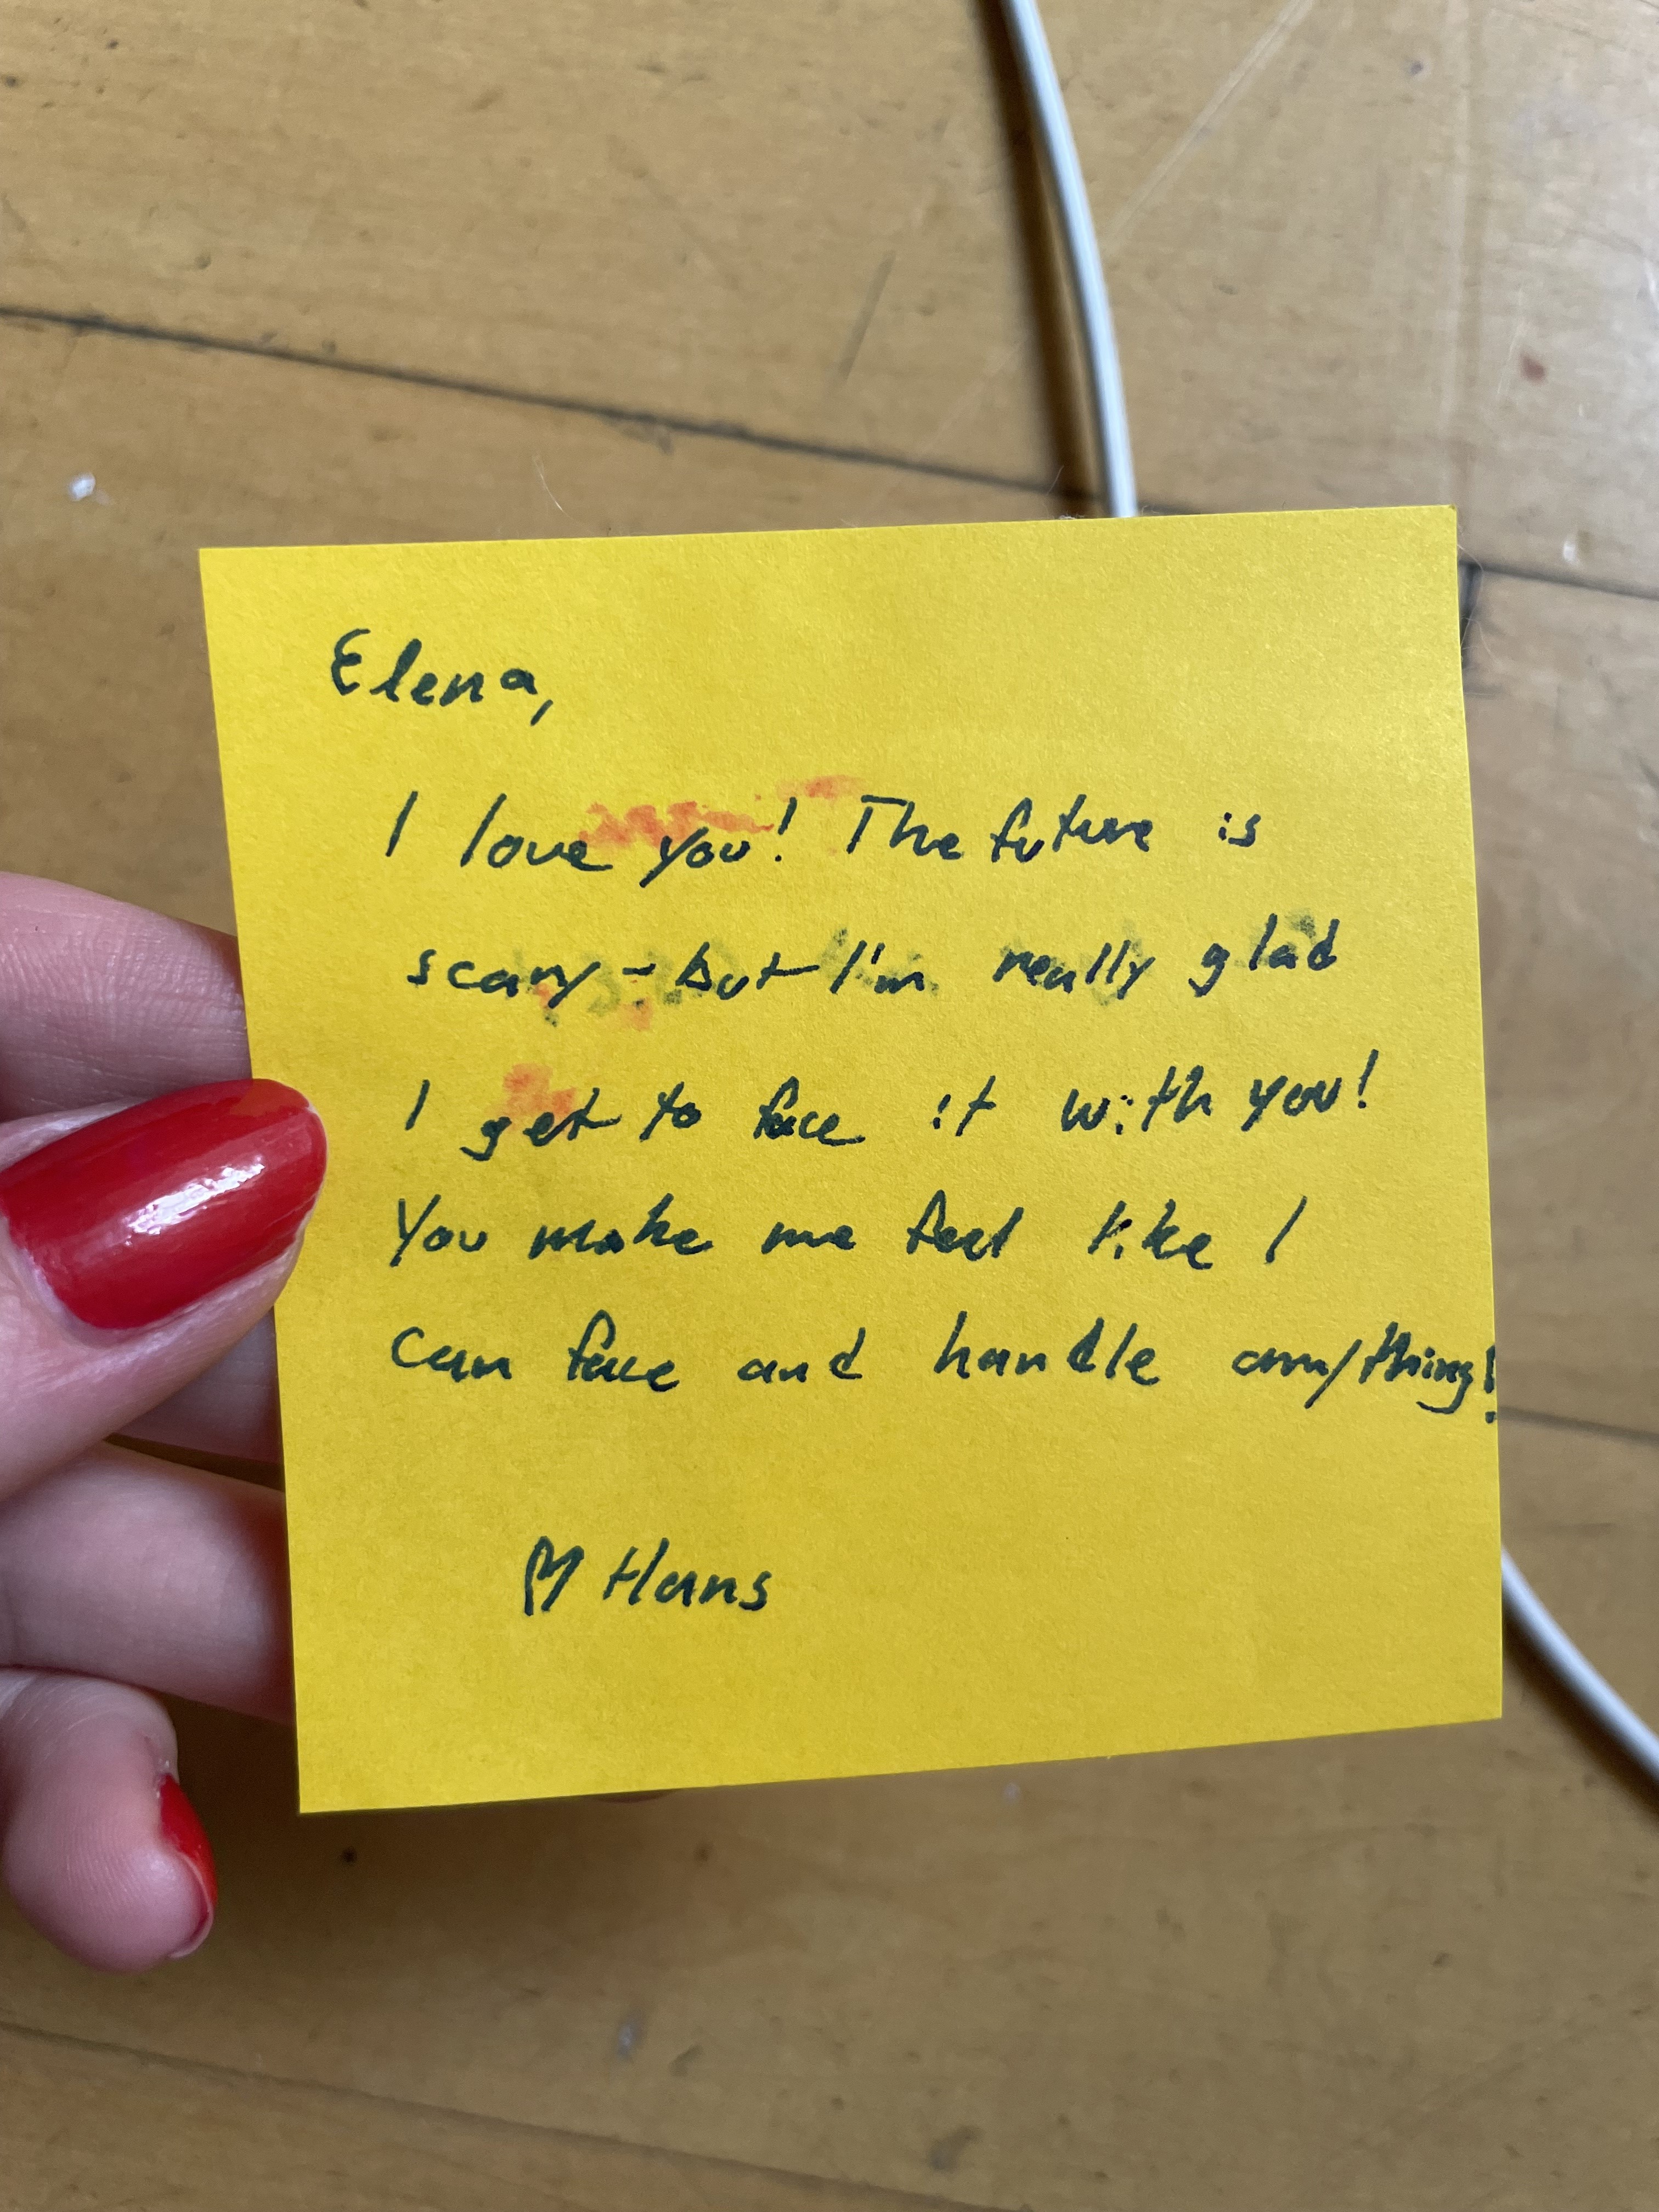 Elena,
I love you! The future is
scary - but I'm really glad
I get to face it with you!
You make me feel like I
can face and handle anything!
♡ Hans